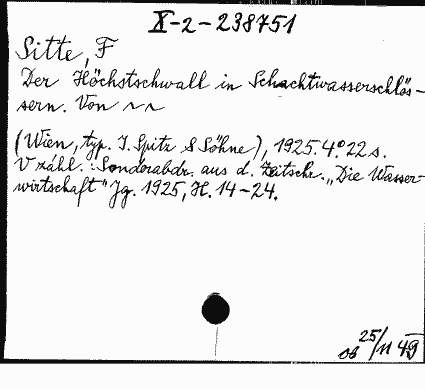 X-2-238751
Sitte, F
Der Höchstschwall in Schachtwasserschlös-
sern. Von ~~
(Wien, typ. I. Spitz & Söhne), 1925. 4° 22 s.
V zähl.: Sonderabdr. aus d. Zeitschr. „Die Wasser-
wirtschaft" Jg. 1925, H. 14-24.
25/11 49